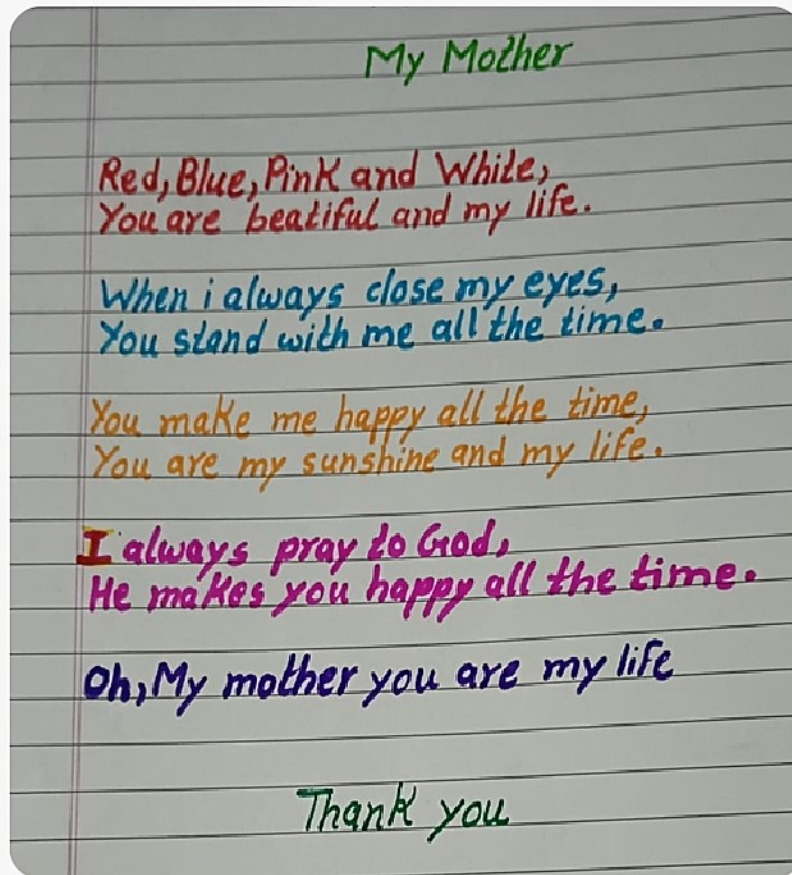 My Mother
Red, Blue, Pink and White,
You are beatiful and my life.
When i always close my eyes,
You stand with me all the time.
You make me happy all the time,
You are my sunshine and my life.
I always pray to God,
He makes you happy all the time.
Oh, My mother you are my life
Thank you